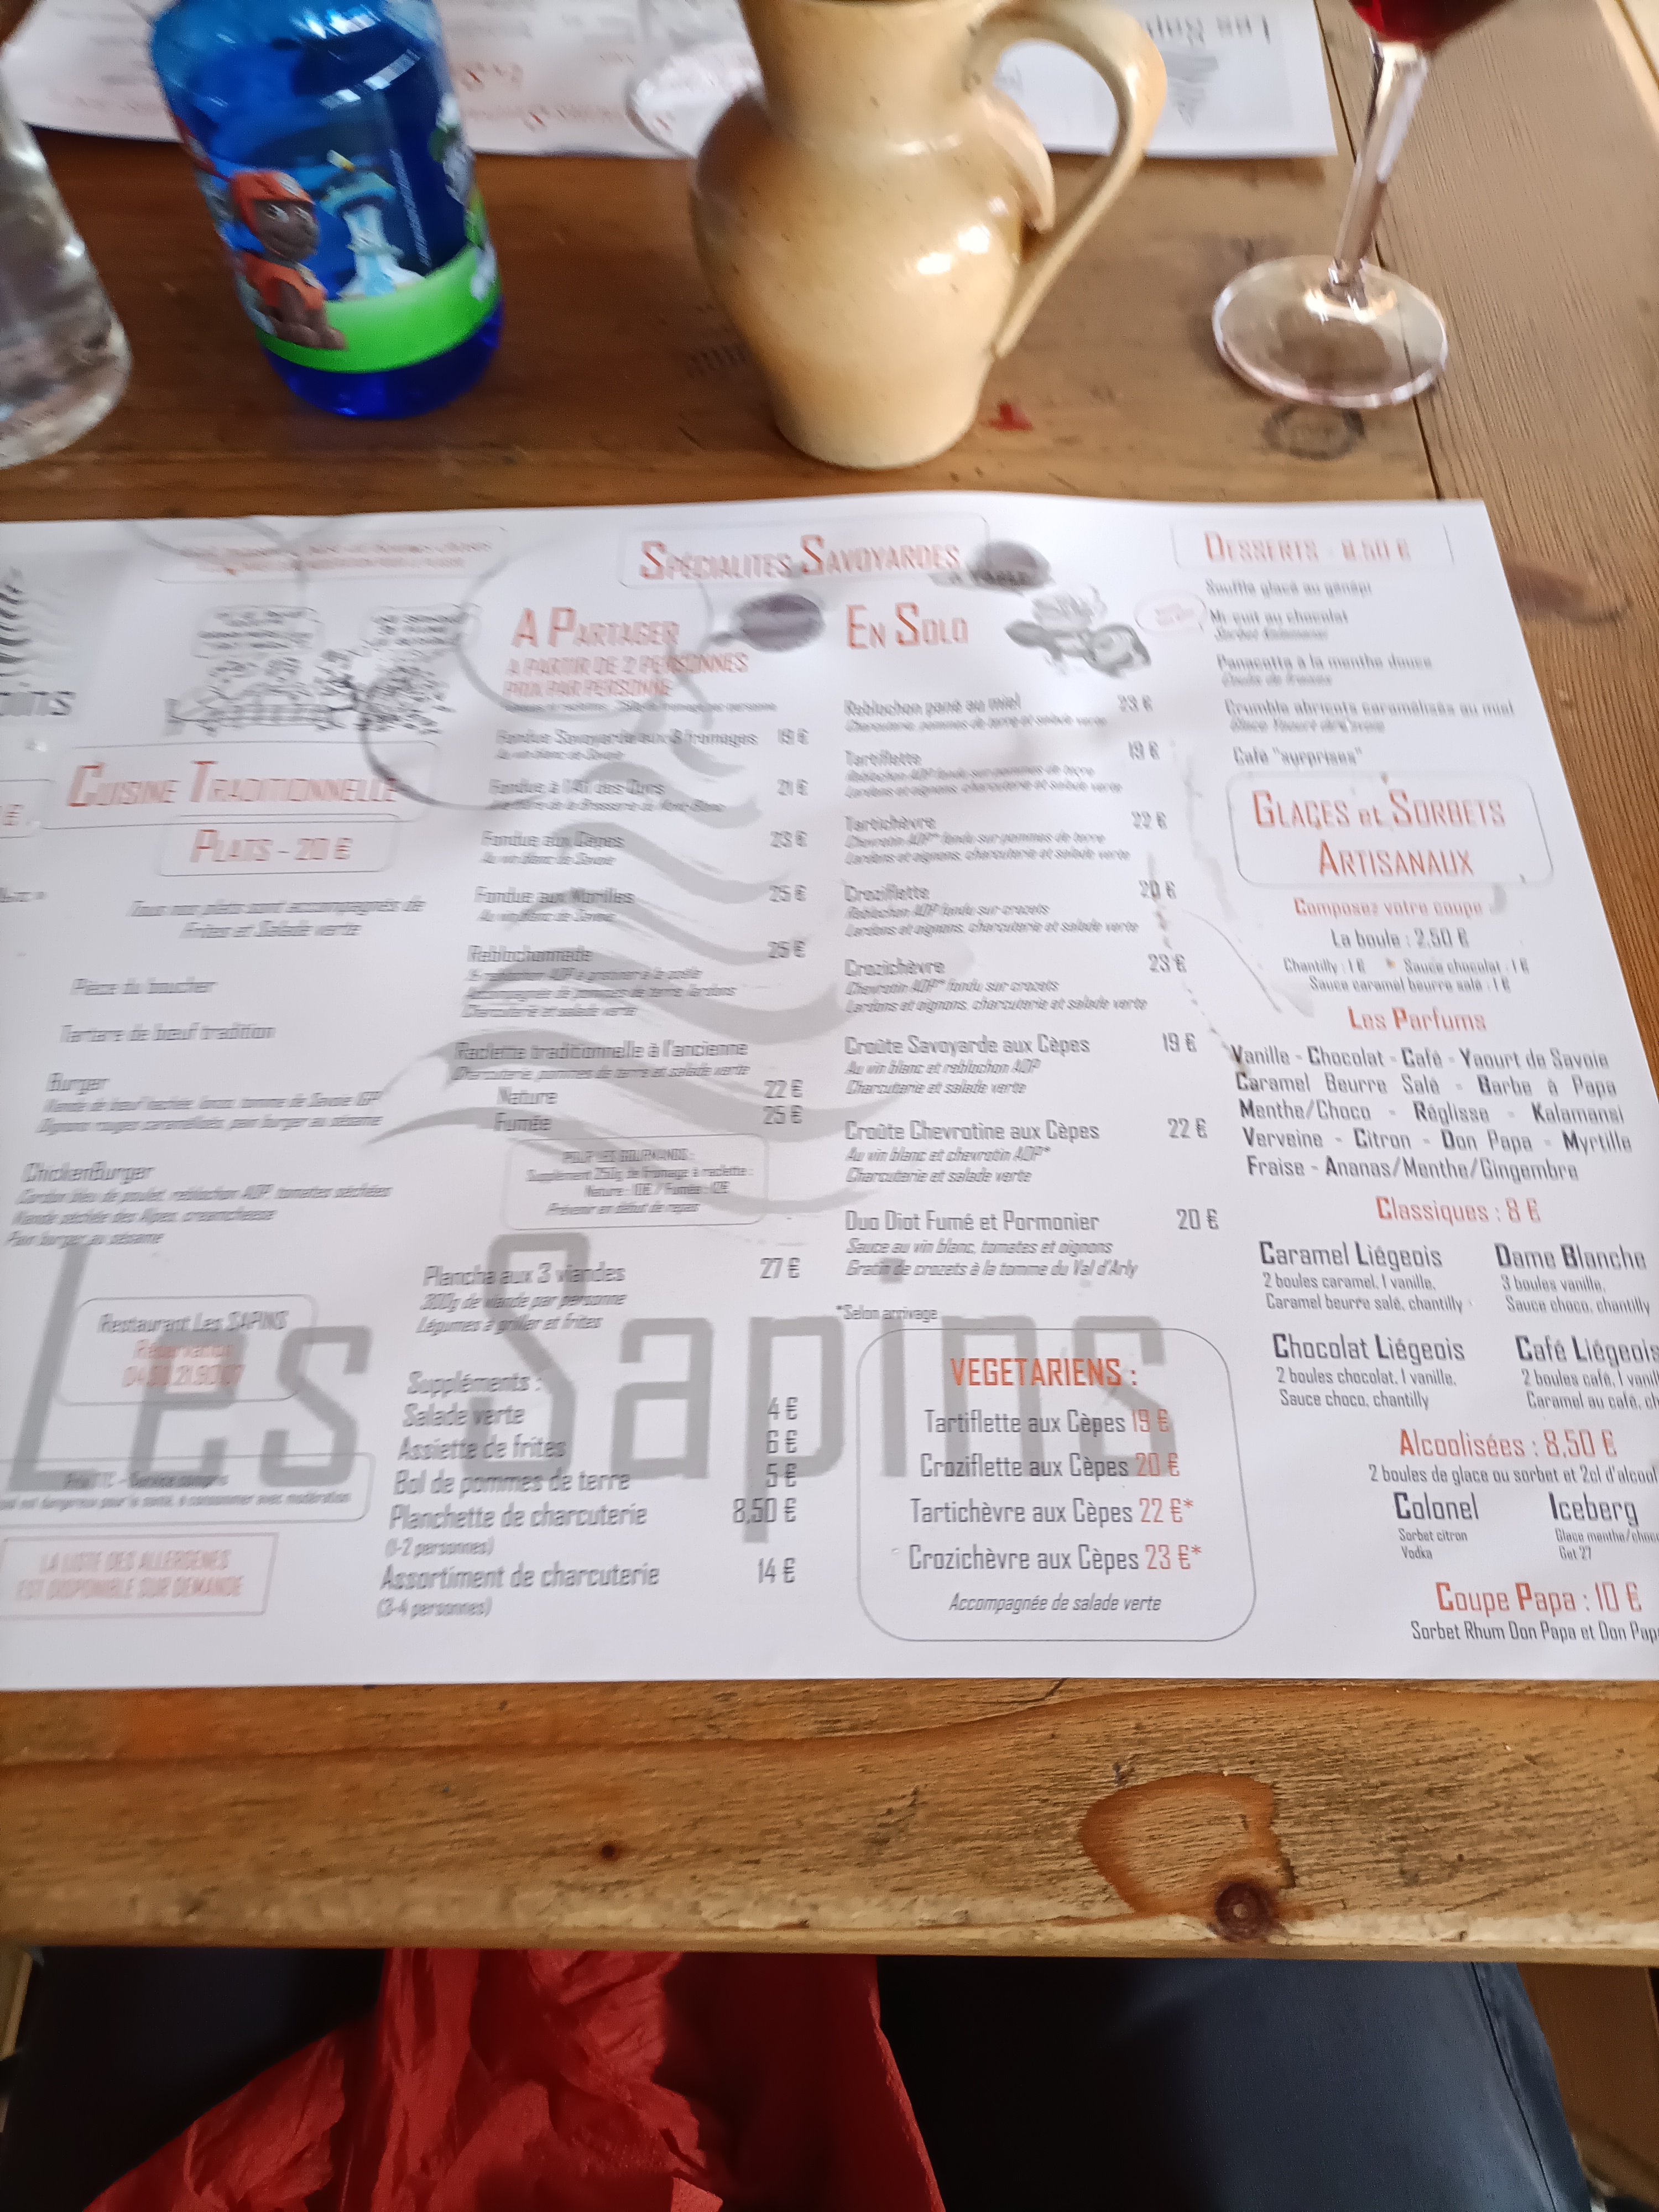 CUISINE TRADITIONNELLE
PLATS - 20 €
Tous nos plats sont accompagnés de
Frites et Salade verte
Pièce du boucher
Tartare de bœuf tradition
Burger
Viande de bœuf hachée, tomme de Savoie IGP
Oignons rouges caramélisés, pain burger au sésame
ChickenBurger
Cordon bleu de poulet, reblochon AOP, tomates séchées
Viande séchée des Alpes, creamcheese
Pain burger au sésame
Restaurant Les SAPINS
Réservation
LA LISTE DES ALLERGENES
EST DISPONIBLE SUR DEMANDE
SPÉCIALITES SAVOYARDES
A PARTAGER
A PARTIR DE 2 PERSONNES
PRIX PAR PERSONNE
Fondue Savoyarde aux 3 fromages 19 €
Au vin blanc de Savoie
Fondue à l'AT des Ours 21 €
Fondue aux Cèpes 23 €
Au vin blanc de Savoie
Fondue aux Morilles 25 €
Au vin blanc de Savoie
Reblochonnade 25 €
Accompagnée de pommes de terre, lardons
Charcuterie et salade verte
Raclette traditionnelle à l'ancienne
Charcuterie, pommes de terre et salade verte
Nature 22 €
Fumée 25 €
POUR LES GOURMANDS :
Supplément 250g de fromage à raclette :
Nature : 10€ / Fumée : 12€
Prévenir en début de repas
Plancha aux 3 viandes 27 €
300g de viande par personne
Légumes à griller et frites
Suppléments :
Salade verte 4 €
Assiette de frites 6 €
Bol de pommes de terre 5 €
Planchette de charcuterie 8,50 €
(1-2 personnes)
Assortiment de charcuterie 14 €
(3-4 personnes)
EN SOLO
Reblochon pané au miel 23 €
Charcuterie, pommes de terre et salade verte
Tartiflette 19 €
Reblochon AOP fondu sur pommes de terre
Lardons et oignons, charcuterie et salade verte
Tartichèvre 22 €
Chevrotin AOP* fondu sur pommes de terre
Lardons et oignons, charcuterie et salade verte
Croziflette 20 €
Reblochon AOP fondu sur crozets
Lardons et oignons, charcuterie et salade verte
Crozichèvre 23 €
Chevrotin AOP* fondu sur crozets
Lardons et oignons, charcuterie et salade verte
Croûte Savoyarde aux Cèpes 19 €
Au vin blanc et reblochon AOP
Charcuterie et salade verte
Croûte Chevrotine aux Cèpes 22 €
Au vin blanc et chevrotin AOP*
Charcuterie et salade verte
Duo Diot Fumé et Pormonier 20 €
Sauce au vin blanc, tomates et oignons
Gratin de crozets à la tomme du Val d'Arly
*Selon arrivage
VEGETARIENS :
Tartiflette aux Cèpes 19 €
Croziflette aux Cèpes 20 €
Tartichèvre aux Cèpes 22 €*
Crozichèvre aux Cèpes 23 €*
Accompagnée de salade verte
Les Sapins
DESSERTS - 8.50 €
Soufflé glacé au génépi
Mi-cuit au chocolat
Panacotta à la menthe douce
Crumble abricots caramélisés au miel
Café "surprises"
GLACES et SORBETS
ARTISANAUX
Composez votre coupe :
La boule : 2,50 €
Chantilly : 1 € * Sauce chocolat : 1 €
Sauce caramel beurre salé : 1 €
Les Parfums
Vanille - Chocolat - Café - Yaourt de Savoie
Caramel Beurre Salé - Barbe à Papa
Menthe/Choco - Réglisse - Kalamansi
Verveine - Citron - Don Papa - Myrtille
Fraise - Ananas/Menthe/Gingembre
Classiques : 8 €
Caramel Liégeois
2 boules caramel, 1 vanille,
Caramel beurre salé, chantilly
Dame Blanche
3 boules vanille,
Sauce choco, chantilly
Chocolat Liégeois
2 boules chocolat, 1 vanille,
Sauce choco, chantilly
Café Liégeois
2 boules café, 1 vanill
Caramel au café, ch
Alcoolisées : 8.50 €
2 boules de glace ou sorbet et 2cl d'alcool
Colonel
Sorbet citron
Vodka
Iceberg
Glace menthe/choco
Get 27
Coupe Papa : 10 €
Sorbet Rhum Don Papa et Don Pap